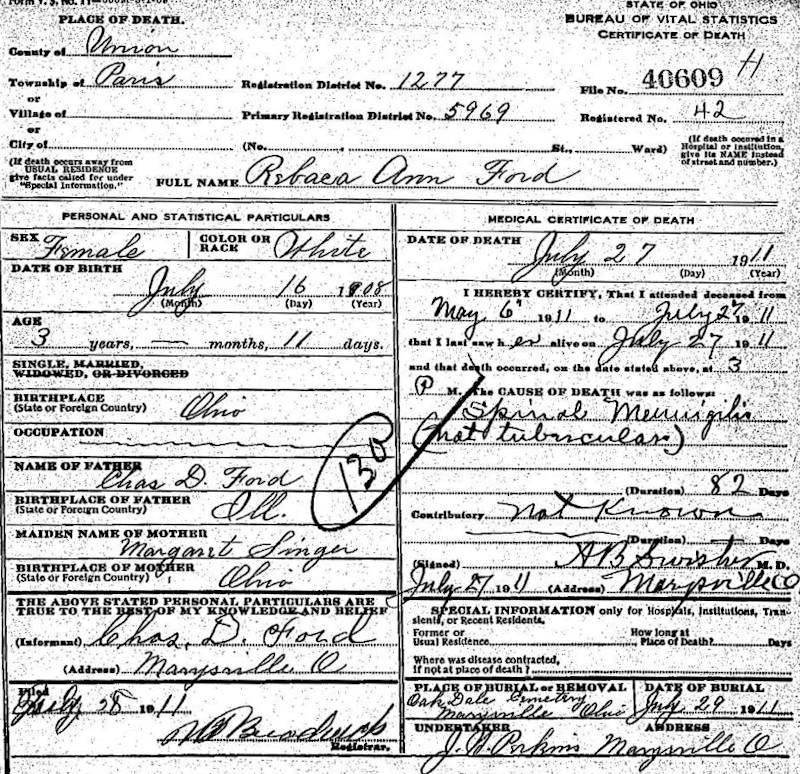 STATE OF OHIO
BUREAU OF VITAL STATISTICS
CERTIFICATE OF DEATH
PLACE OF DEATH.
County of Union
Township of Paris
or
Village of
or
City of
(If death occurs away from
USUAL RESIDENCE
give facts called for under
"Special Information.")
Registration District No. 1277
Primary Registration District No. 5969
(No. St., Ward)
File No. 40609 H
Registered No. 42
(If death occured in a
Hospital or Institution,
give its NAME instead
of street and number.)
FULL NAME Rebaca Ann Ford
PERSONAL AND STATISTICAL PARTICULARS
SEX Female COLOR OR RACE White
DATE OF BIRTH
July 16 1908
(Month) (Day) (Year)
AGE
3 years, — months, 11 days.
SINGLE, MARRIED,
WIDOWED, OR DIVORCED
BIRTHPLACE
(State or Foreign Country) Ohio
OCCUPATION
NAME OF FATHER
Chas D. Ford
BIRTHPLACE OF FATHER
(State or Foreign Country) Ill.
130
MAIDEN NAME OF MOTHER
Margaret Singer
BIRTHPLACE OF MOTHER
(State or Foreign Country) Ohio
THE ABOVE STATED PERSONAL PARTICULARS ARE
TRUE TO THE BEST OF MY KNOWLEDGE AND BELIEF
(Informant) Chas. D. Ford
(Address) Marysville O
Filed
July 28 1911
Registrar.
MEDICAL CERTIFICATE OF DEATH
DATE OF DEATH
July 27 1911
(Month) (Day) (Year)
I HEREBY CERTIFY, That I attended deceased from
May 6 1911 to July 27 1911
that I last saw her alive on July 27 1911
and that death occurred, on the date stated above, at 3
P M. The CAUSE OF DEATH was as follows:
Spinal Meningitis
(not tubercular)
(Duration) 82 Days
Contributory Not Known
(Duration) Days
(Signed) A B Swisher M. D.
July 27 1911 (Address) Marysville O
SPECIAL INFORMATION only for Hospitals, Institutions, Tran-
sients, or Recent Residents.
Former or
Usual Residence
How long at
Place of Death? Days
Where was disease contracted,
if not at place of death?
PLACE OF BURIAL or REMOVAL
Oak Dale Cemetery
Marysville Ohio
DATE OF BURIAL
July 29 1911
UNDERTAKER ADDRESS
Perkins Marysville O